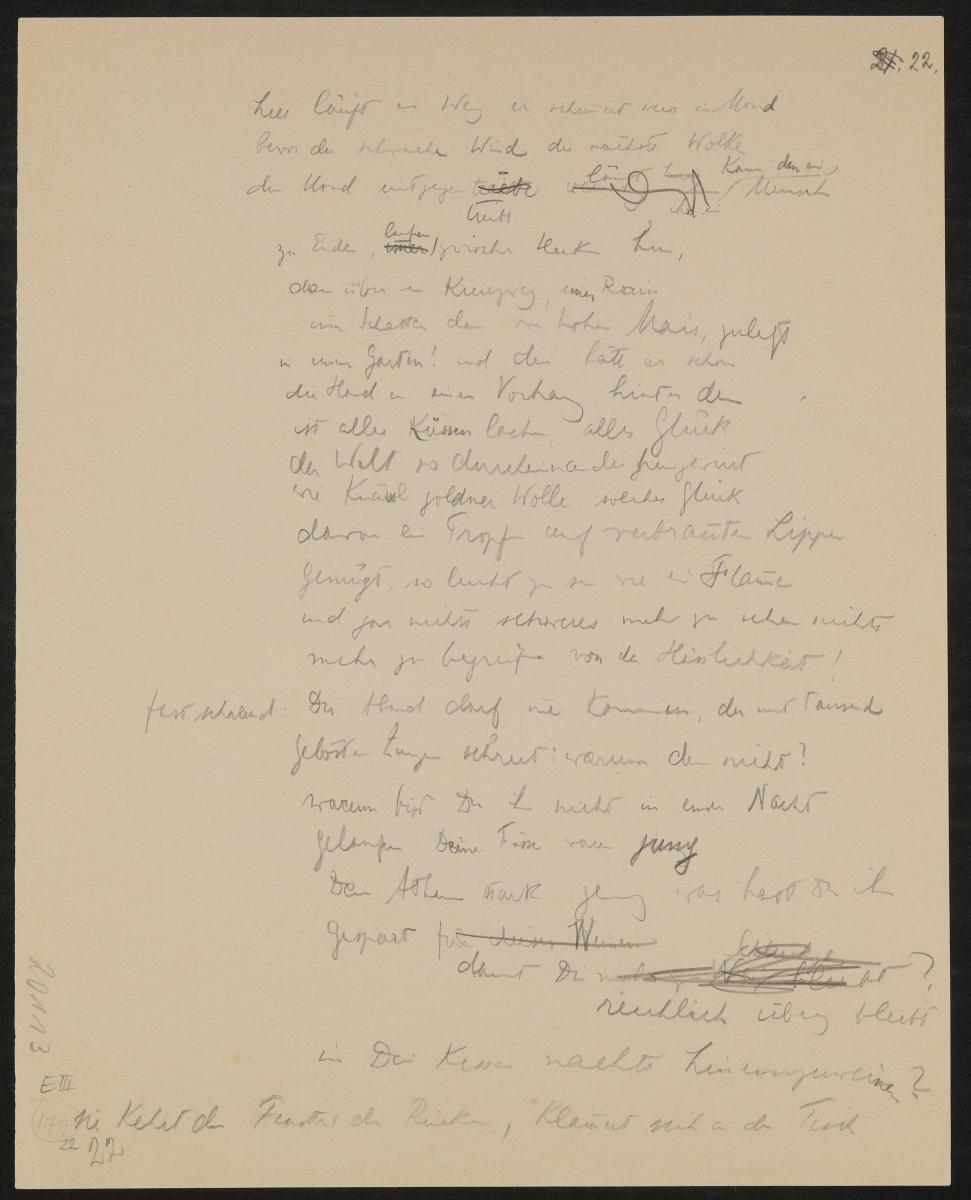 22.
hier läuft ein Weg er schimmert weiss im Mond
bevor der schwache Wind die nächste Wolke
dem Mond entgegen treibt kann den ein Mensch
zu Ende laufen, zwischen Hecken hin,
dann über ein Kreuzweg, einen Rain
im Schatten dann von hohen Mais, zuletzt
in einen Garten! und dann hätte er schon
die Hand an einen Vorhang hinter dem
ist alles Küssen lachen, alles Glück
der Welt so durcheinander hingewirrt
wie Knäul goldner Wolle solches Glück
davon ein Tropfen auf verbrannten Lippen
Genügt, so leicht zu sein wie ein Flamme
und gar nichts schweres mehr zu sehen nichts
mehr zu begreifen von der Hässlichkeit!
fast schreiend: Der Abend darf nie kommen, der mit Tausend
gelösten Zungen schreit: warum denn nicht?
warum bist Du ihn nicht in einer Nacht
gelaufen Deine Füsse waren jung
Dein Athem stark genug was hast Du ihn
Gespart für deines Weinen
damit Dir ?
reichlich übrig bleibt
in Dein Kissen nachts hineinzuweinen?
sie kehrt dem Fenster den Rücken, klammert sich an den Tisch
E III
179
22
22